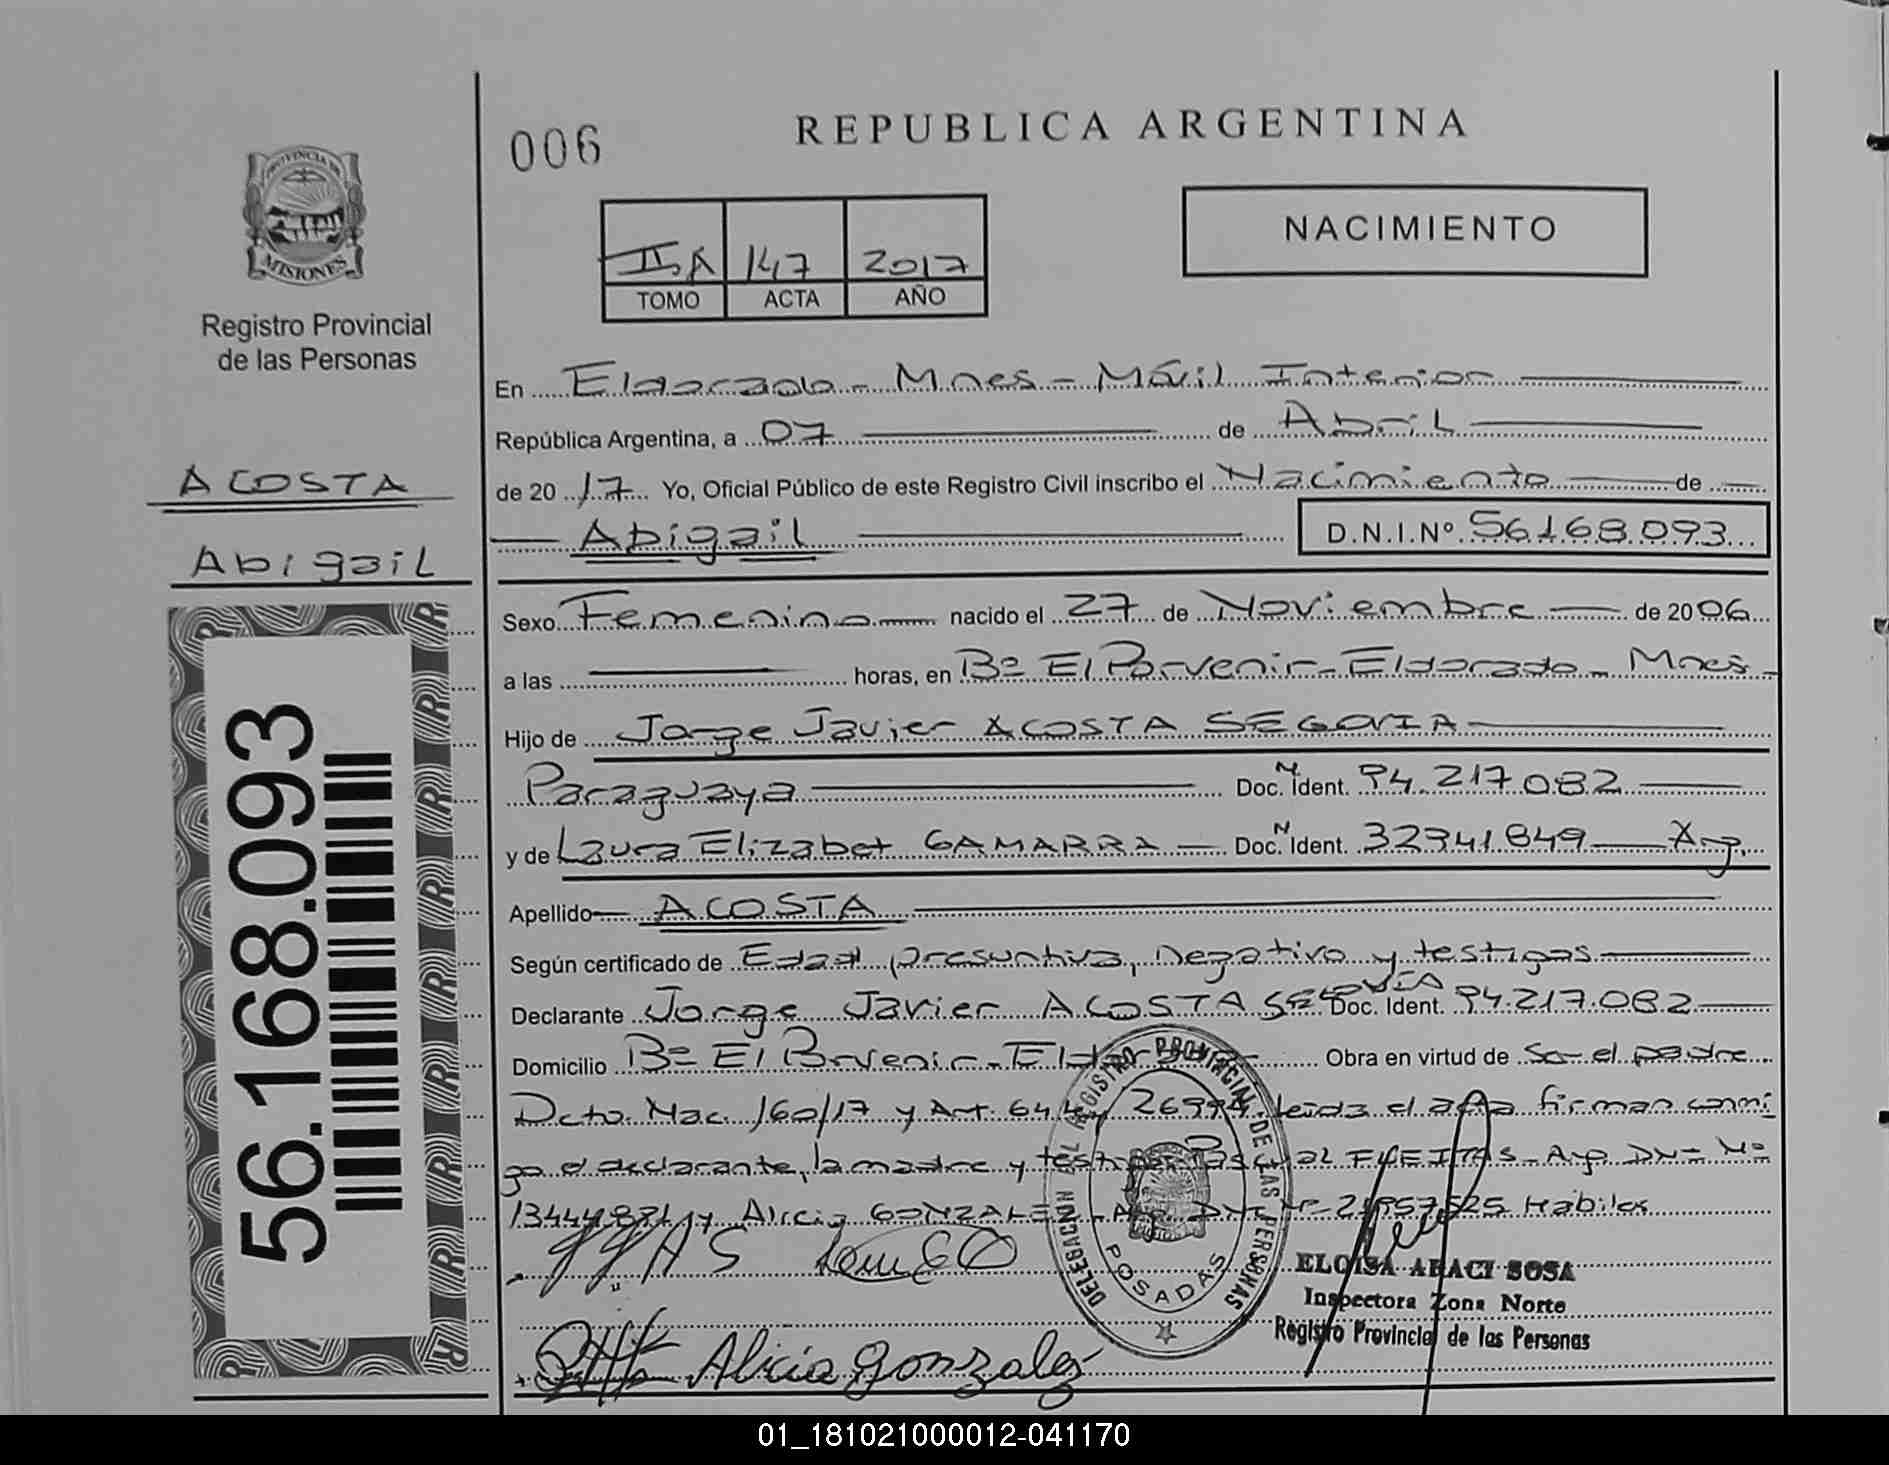 006
REPUBLICA ARGENTINA
PROVINCIA DE
MISIONES
Registro Provincial
de las Personas
NACIMIENTO
II A 147 2017
TOMO ACTA AÑO
En Eldorado - Mnes - Móvil Interior
República Argentina, a 07 de Abril
de 2017 Yo, Oficial Público de este Registro Civil inscribo el Nacimiento de
Abigail D.N.I.Nº 56.168.093
ACOSTA
Abigail
Sexo Femenino nacido el 27 de Noviembre de 2006
a las horas, en Bº El Porvenir - Eldorado - Mnes -
Hijo de Jorge Javier ACOSTA SEGOVIA
Paraguaya Doc. N Ident. 94.217.082
y de Laura Elizabet GAMARRA Doc. N Ident. 32941849 Arg.
Apellido ACOSTA
Según certificado de Edad presuntiva, Negativo y testigos
Declarante Jorge Javier ACOSTA SEGOVIA Doc. Ident. 94.217.082
Domicilio Bº El Porvenir - Eldorado Obra en virtud de Ser el padre
Dcto. Nac. 160/17 y Art. 64 Ley 26994. Leída el acta firman conmi
go el declarante, la madre y testigos FLEITAS - Arg. DNI Nº
y Alicia GONZALEZ - Arg. DNI Nº Habiles
56.168.093
JJAS
Alicia Gonzalez
DELEGACION DEL REGISTRO PROVINCIAL DE LAS PERSONAS
POSADAS
ELOISA ARACI SOSA
Inspectora Zona Norte
Registro Provincial de las Personas
01_181021000012-041170